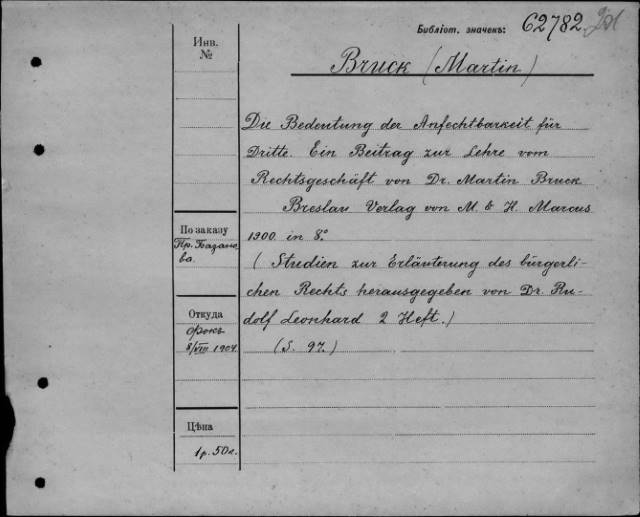 Библіот. значекъ: 62782
Инв.
№
Bruck (Martin)
Die Bedeutung der Anfechtbarkeit für
Dritte. Ein Beitrag zur Lehre vom
Rechtsgeschäft von Dr. Martin Bruck
Breslau Verlag von M. & H. Marcus
1900 in 8.°
(Studien zur Erläuterung des bürgerli-
chen Rechts herausgegeben von Dr. Ru-
dolf Leonhard 2 Heft.)
(S. 97.)
По заказу
Пр. Базане
ва.
Откуда
Фокъ
8/VIII 1904.
Цѣна
1 р. 50 к.